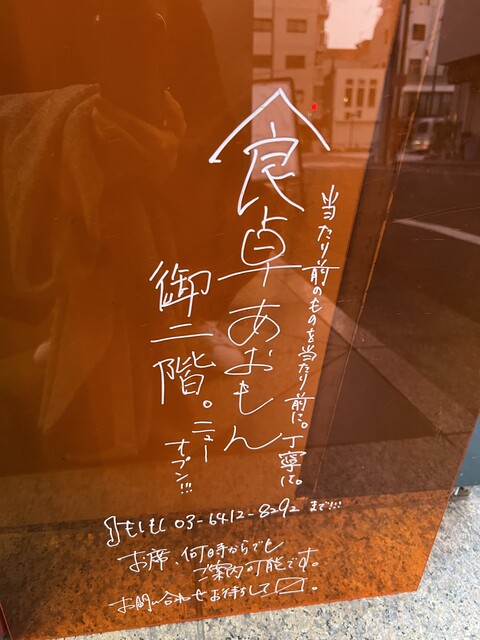 当たり前のものを当たり前に。丁寧に。
食卓あおもん
御二階。ニュー
オープン!!!
もしもし 03-6412-8292 まで!!!
お席、何時からでも
ご案内可能です。
お問い合わせお待ちして〼。